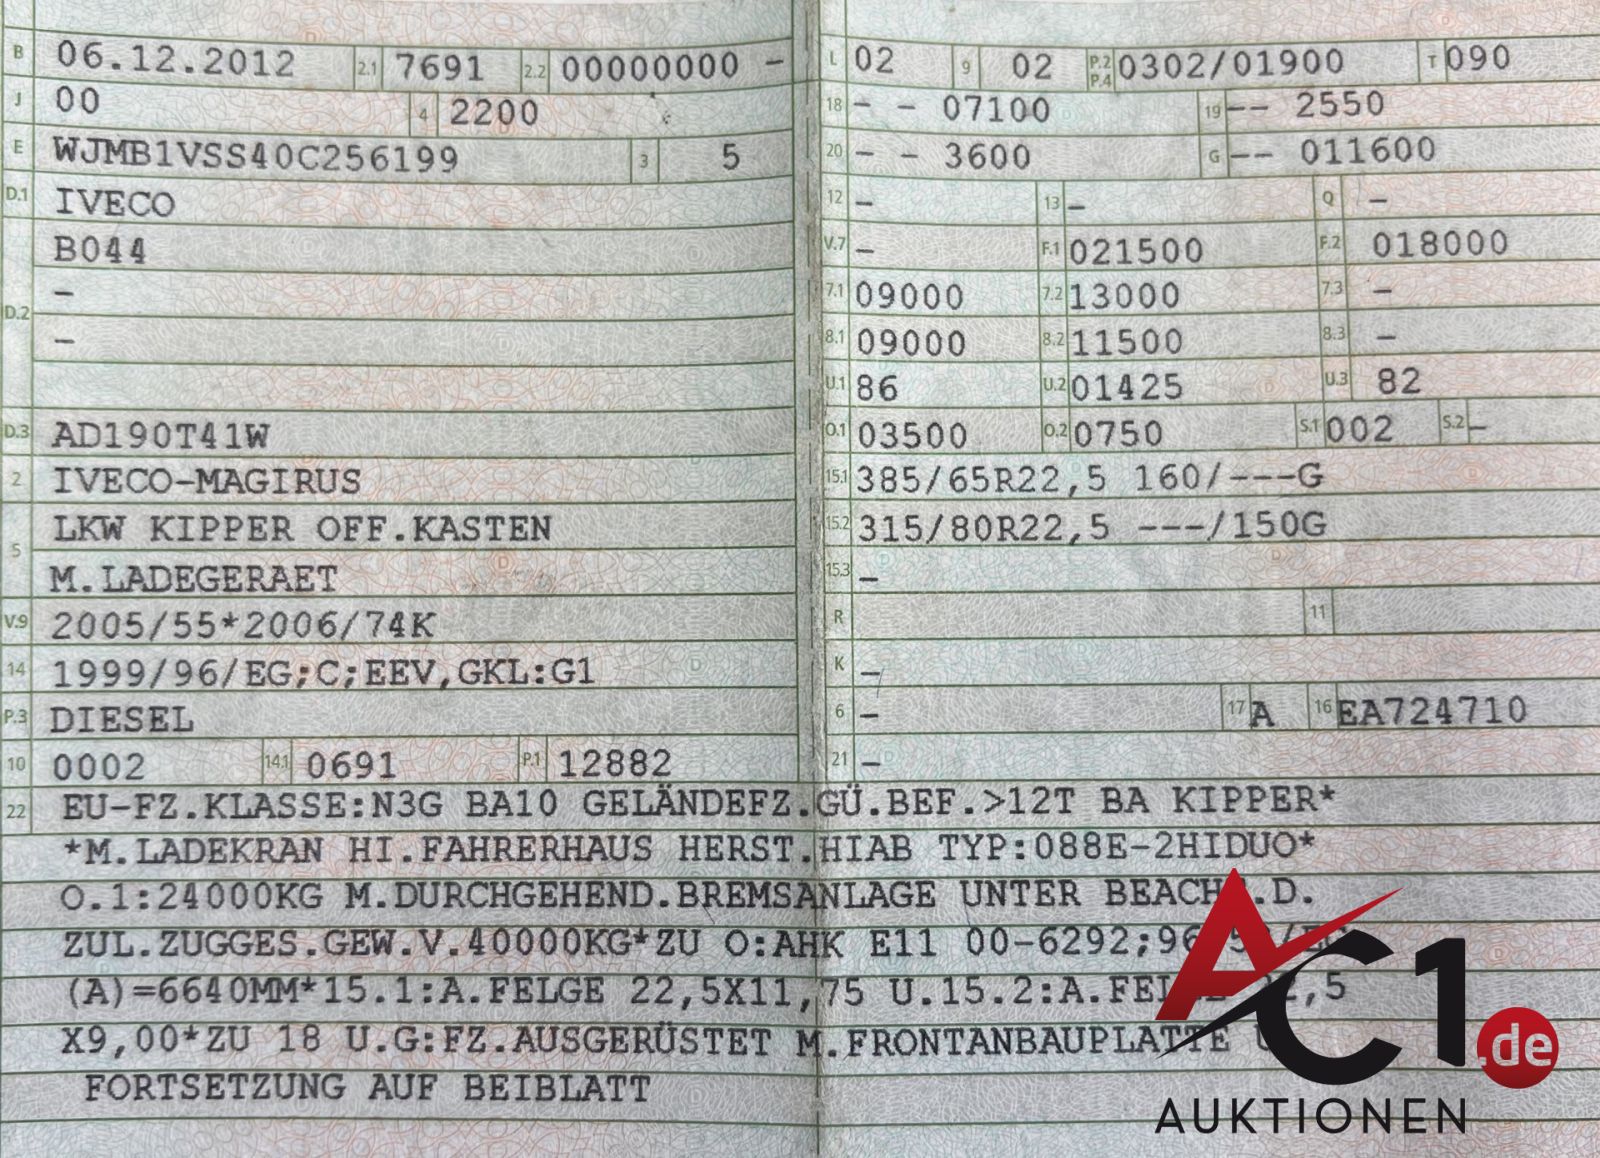 B 06.12.2012 2.1 7691 2.2 00000000 -
J 00 4 2200
E WJMB1VSS40C256199 3 5
D.1 IVECO
B044
D.2 -
-
D.3 AD190T41W
2 IVECO-MAGIRUS
5 LKW KIPPER OFF.KASTEN
M.LADEGERAET
V.9 2005/55*2006/74K
14 1999/96/EG;C;EEV,GKL:G1
P.3 DIESEL
10 0002 14.1 0691 P.1 12882
L 02 9 02 P.2 P.4 0302/01900 T 090
18 - - 07100 19 -- 2550
20 - - 3600 G -- 011600
12 - 13 - Q -
V.7 - F.1 021500 F.2 018000
7.1 09000 7.2 13000 7.3 -
8.1 09000 8.2 11500 8.3 -
U.1 86 U.2 01425 U.3 82
O.1 03500 O.2 0750 S.1 002 S.2 -
15.1 385/65R22,5 160/---G
15.2 315/80R22,5 ---/150G
15.3 -
R 11
K -
6 - 17 A 16 EA724710
21 -
22 EU-FZ.KLASSE:N3G BA10 GELÄNDEFZ.GÜ.BEF.>12T BA KIPPER*
*M.LADEKRAN HI.FAHRERHAUS HERST.HIAB TYP:088E-2HIDUO*
O.1:24000KG M.DURCHGEHEND.BREMSANLAGE UNTER BEACH .D.
ZUL.ZUGGES.GEW.V.40000KG*ZU O:AHK E11 00-6292;96
(A)=6640MM*15.1:A.FELGE 22,5X11,75 U.15.2:A.FEL ,5
X9,00*ZU 18 U.G:FZ.AUSGERÜSTET M.FRONTANBAUPLATTE
FORTSETZUNG AUF BEIBLATT
AC1.de
AUKTIONEN